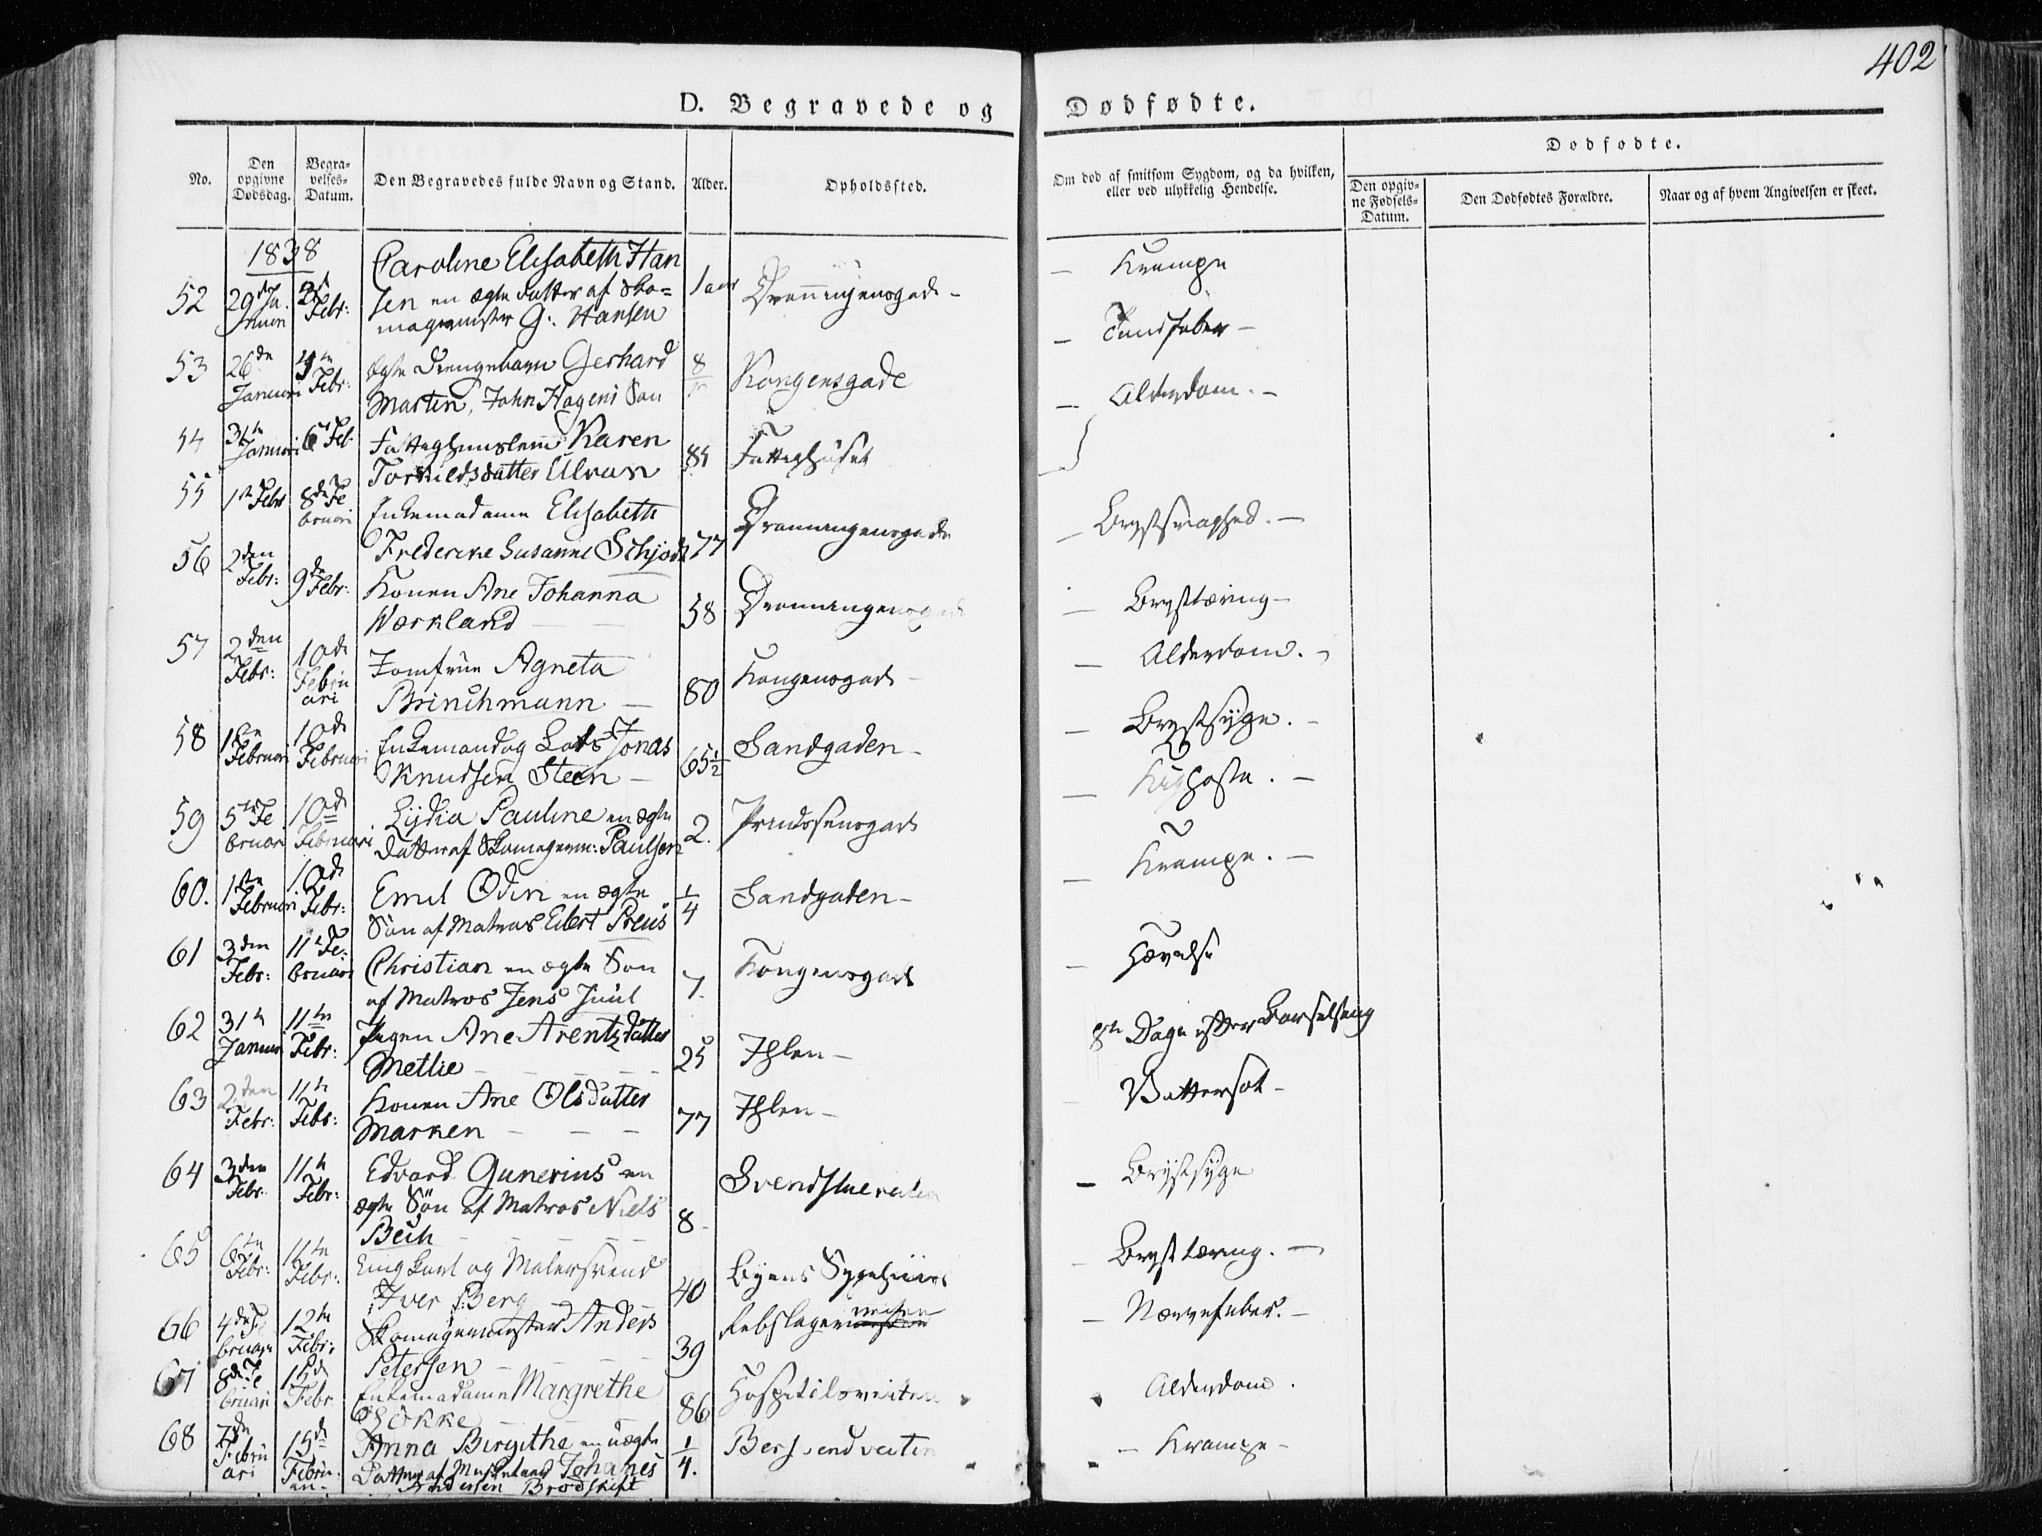 402
D. Begravede og Dødfødte.
No.
Den opgivne Dødsdag.
Begra-velses-Datum.
Den Begravedes fulde Navn og Stand.
Alder.
Opholdssted.
Om død af smitsom Sygdom, og da hvilken, eller ved ulykkelig Hendelse.
Dødfødte.
Den opgiv-ne Fødsels-Datum.
Den Dødfødtes Forældre.
Naar og af hvem Angivelsen er skeet.
1838
Caroline Elisabeth Han
52 29de Ja nuari Febr: sen en ægte Datter af Sko= 1 aar Dronningensgade - Krampe
magermester G. Hansen
53 26de Januari Febr: ægte Drengebarn Gerhard 8 Kongensgade
Martin, John Hagens Søn
54 31te Januari 6te Feb Fattighuuslem Karen 84 Fattighuset Alderdom. -
Torkildsdatter Ulvan
55 1ste Febr 8de Fe bruari Enkemadame Elisabeth Dronningensgade Brystsvaghed. -
Frederike Susanne Schjødt 77
56 2den Febr: 9de Febr: Konen Ane Johanna 58 Dronningensgade Brysttæring -
Wærkland
57 2den Febr: 10de Februari Jomfrue Agneta 80 Kongensgade - Alderdom. -
Brinchmann
58 1ste Februari 10de Februari Enkemand og Lods Jonas 65½ Sandgaden - Brystsyge. -
Knudsen Steen -
59 5te Fe bruari 10de Februari Lydia Pauline en ægte 2. Prindsensgade Kighoste. -
Datter af Skomagerm: Paulsen
60. 1ste Februari 10de Febr: Emil Odin en ægte 1/4 Sandgaden - Krampe. -
Søn af Matros Eilert Preus
61 3den Febr: 11te Fe: bruari Christian en ægte Søn 7. Kongensgade Hævelse
af Matros Jens Juul
62 31te Januari 11te Febr: Pigen Ane Arentzdatter 25 Ihlen - 8te Dage efter Barselseng
Mettie
63 2den Febr: 11te Febr: Konen Ane Olsdatter 77 Ihlen - Vattersot -
Marken
64 3den Febr. 11te Febr: Edvard Gunerius en Brystsyge
ægte Søn af Matros Niels 8
Bech
65 6te Febr: 11te Febr: Ungkarl og Malersvend 40 Byens Sygehuus Brysttæring. -
Iver Berg
66 4de Fe bruari 12te Febr: Skomagermester Anders 39 Rebslagerveiten Nervefeber. -
Petersen
67 8de Fe bruari 15de Febr Enkemadame Margrethe 86 Hospitalsveiten Alderdom.
68 7de Febru ari 15de Febru. Anna Birgithe en uægte 1/4. Bersvendveiten - Krampe -
Datter af Johanes
Andersen Brodskift